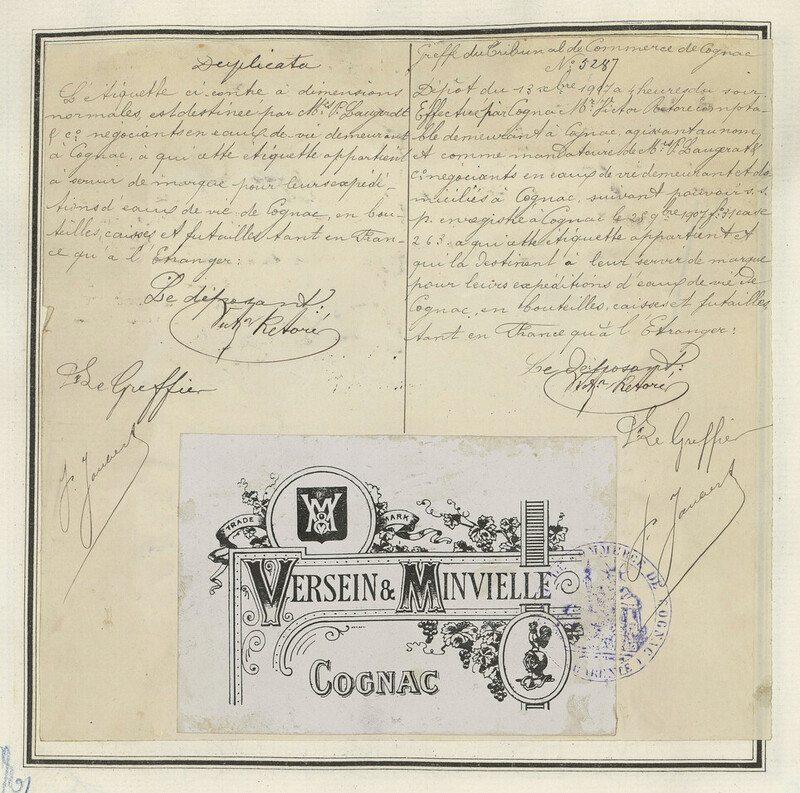 Duplicata
L'étiquette ci-contre à dimensions
normales, est destinée par Mrs P. Laugerat
& Co négociants en eaux de vie demeurant
à Cognac, à qui cette étiquette appartient
à servir de marque pour leurs expédi-
tions d'eaux de vie de Cognac, en bou-
teilles, caisses et futailles tant en Fran-
ce qu'à l'Etranger:
Le déposant:
Vtor Retoré
Pr Le Greffier
Greffe du Tribunal de Commerce de Cognac
No 5287
Dépôt du 13 xbre 1907 à 4 heures du soir
Effectué par Cognac Mr Vr Victor Retoré compta-
ble demeurant à Cognac, agissant au nom
et comme mandataire de Mrs P. Laugerat &
Co négociants en eaux de vie demeurant et do
miciliés à Cognac, suivant pouvoir s.s.
p. enregistré à Cognac le 28 9bre 1907 fo 31 case
263, à qui cette étiquette appartient et
qui la destinent à leur servir de marque
pour leurs expéditions d'eaux de vie de
Cognac, en bouteilles, caisses et futailles,
tant en France qu'à l'Etranger:
Le déposant:
Vtor Retoré
Pr Le Greffier
TRADE MARK
VM
VERSEIN & MINVIELLE
COGNAC
COMMERCE DE COGNAC
CHARENTE